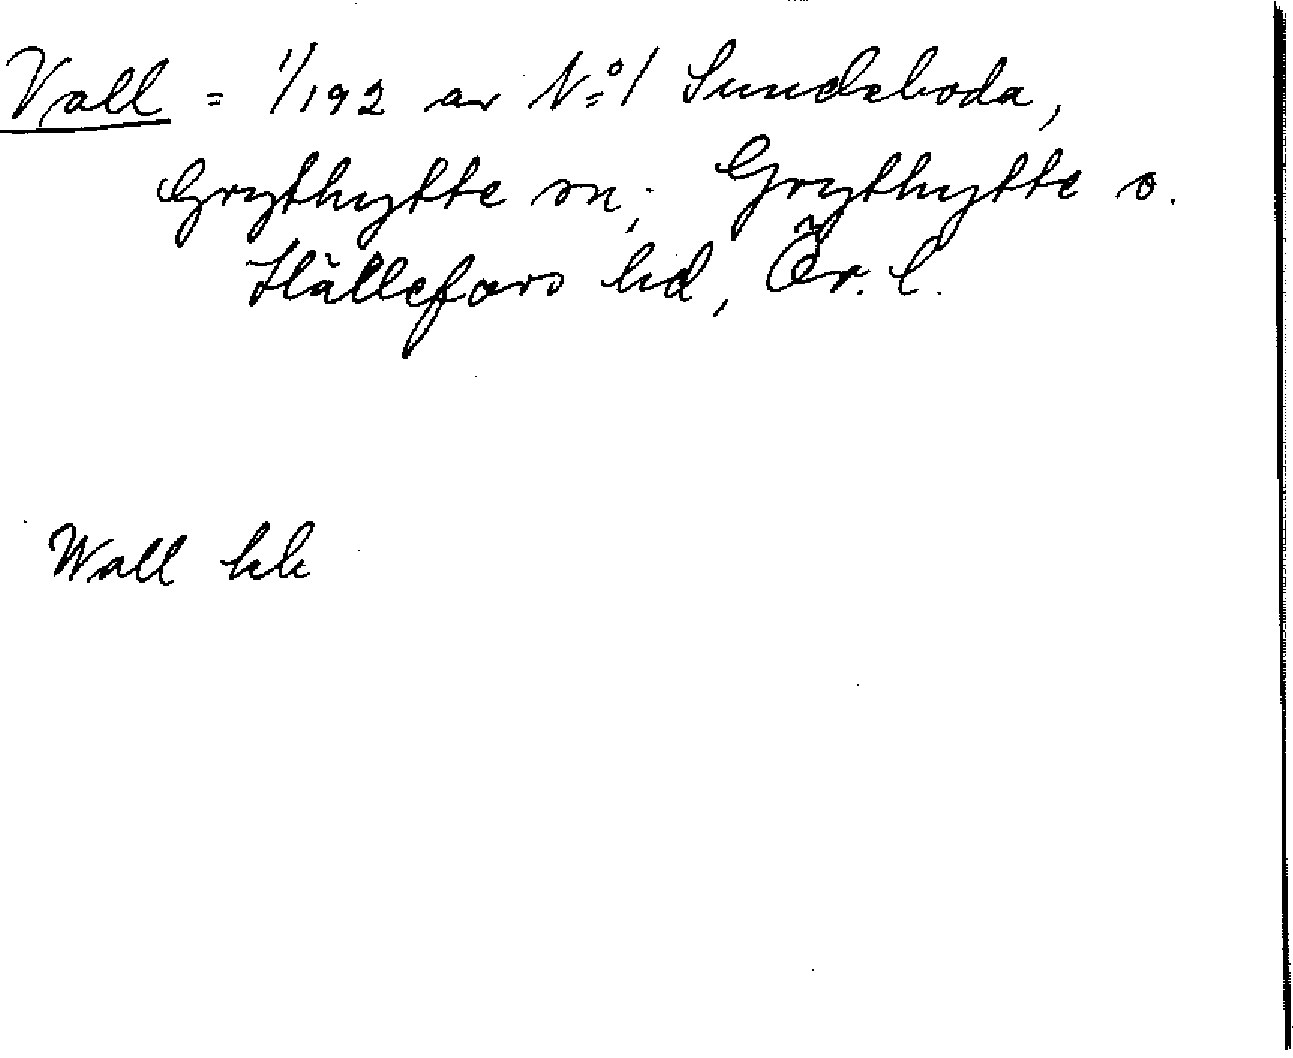 Vall = 1/192 av N:o 1 Sundsboda,
Grythytte sn; Grythytte o.
Hällefors hd, Ör. l.
Wall hk